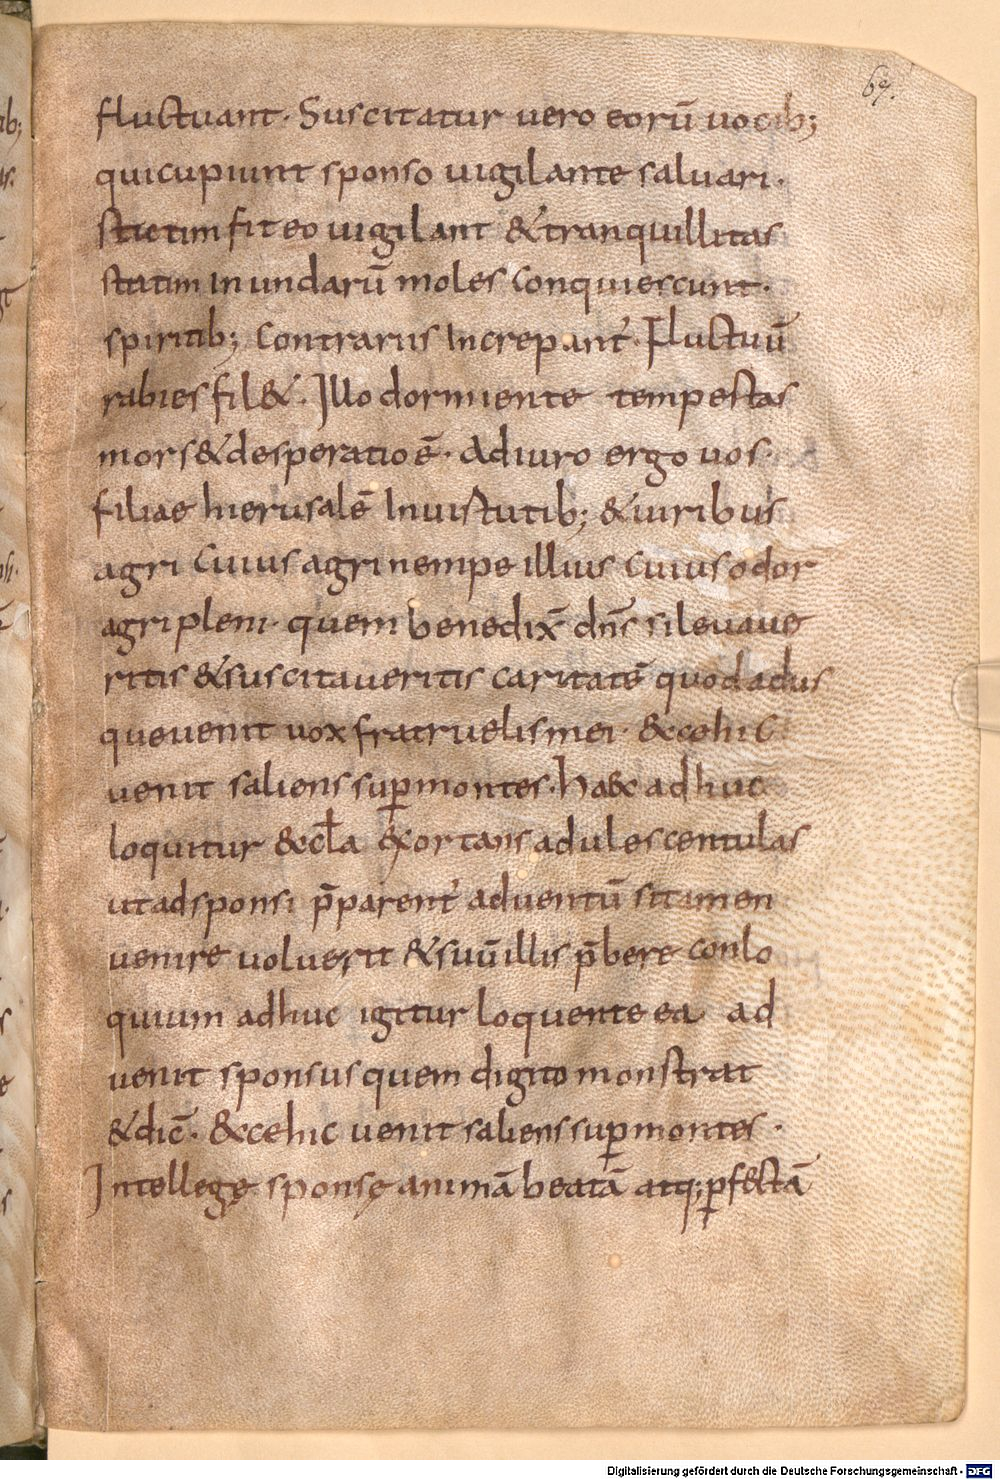 67.
fluctuant. Suscitatur vero eorū vocib;
quicupiunt sponso uigilante saluari.
stictim fit eo uigilant &tranquillitas
statim in undarū moles conquiescunt.
spiritib; contrariis increpant᾿. Fluctuū
rabies fil&. Illo dormiente tempestas
mors&desperatioē. Adiuro ergo uos.
filiae hierusalē Inuistutib; &iuribus
agri cuius agri nempe illius cuius odor
agri pleni. quem benedix̄ dn̄s silevave
ritis &suscitaveritis caritatē quodadus
quevenit vox fratruelis mei. &cehic
venit saliens suꝑmontes. haec adhuc
loquitur &cl̄a exortans adulescentulas
utadsponsi p̄parent᾿ adventū sitamen
venire voluerit &suūillis p̄bere conlo
quium adhuc igitur loquente ea ad
venit sponsus quem digito monstrat
&dic̄. &cehic venit saliens suꝑmontes.
Intellege sponsę animā beatā atq; ꝑfectā
Digitalisierung gefördert durch die Deutsche Forschungsgemeinschaft - DFG